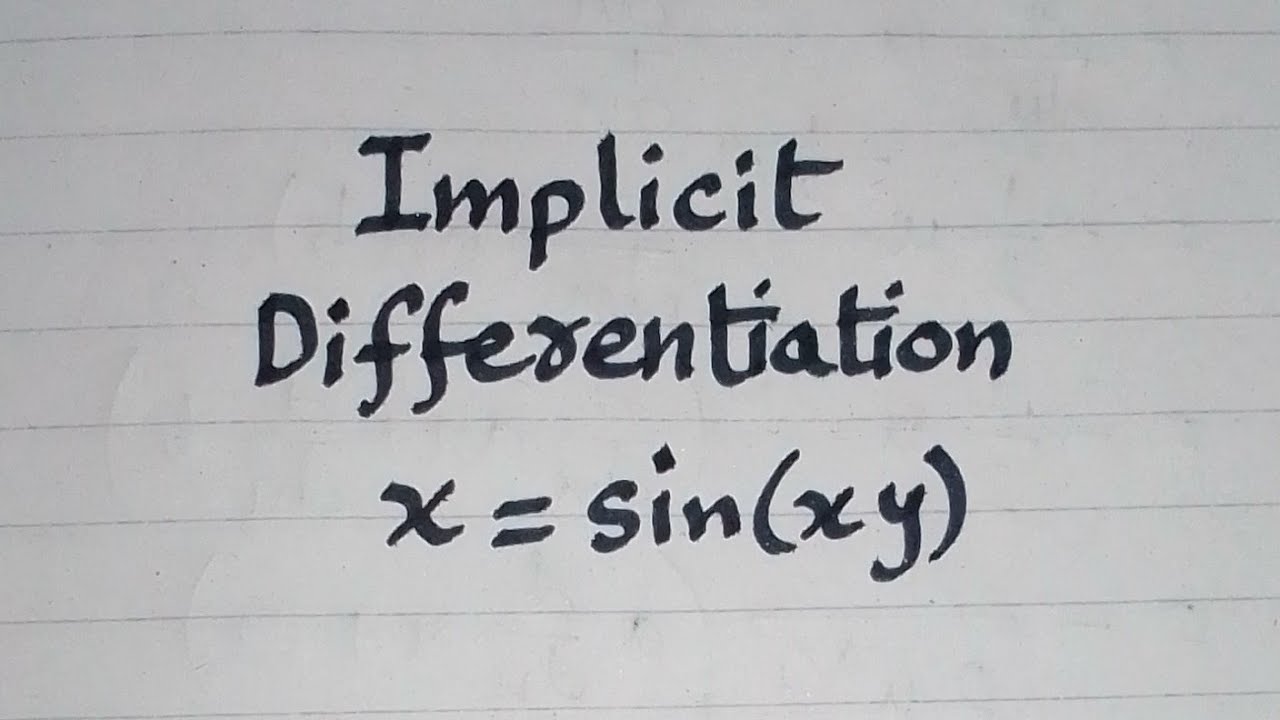 Implicit
Differentiation
x = sin(xy)